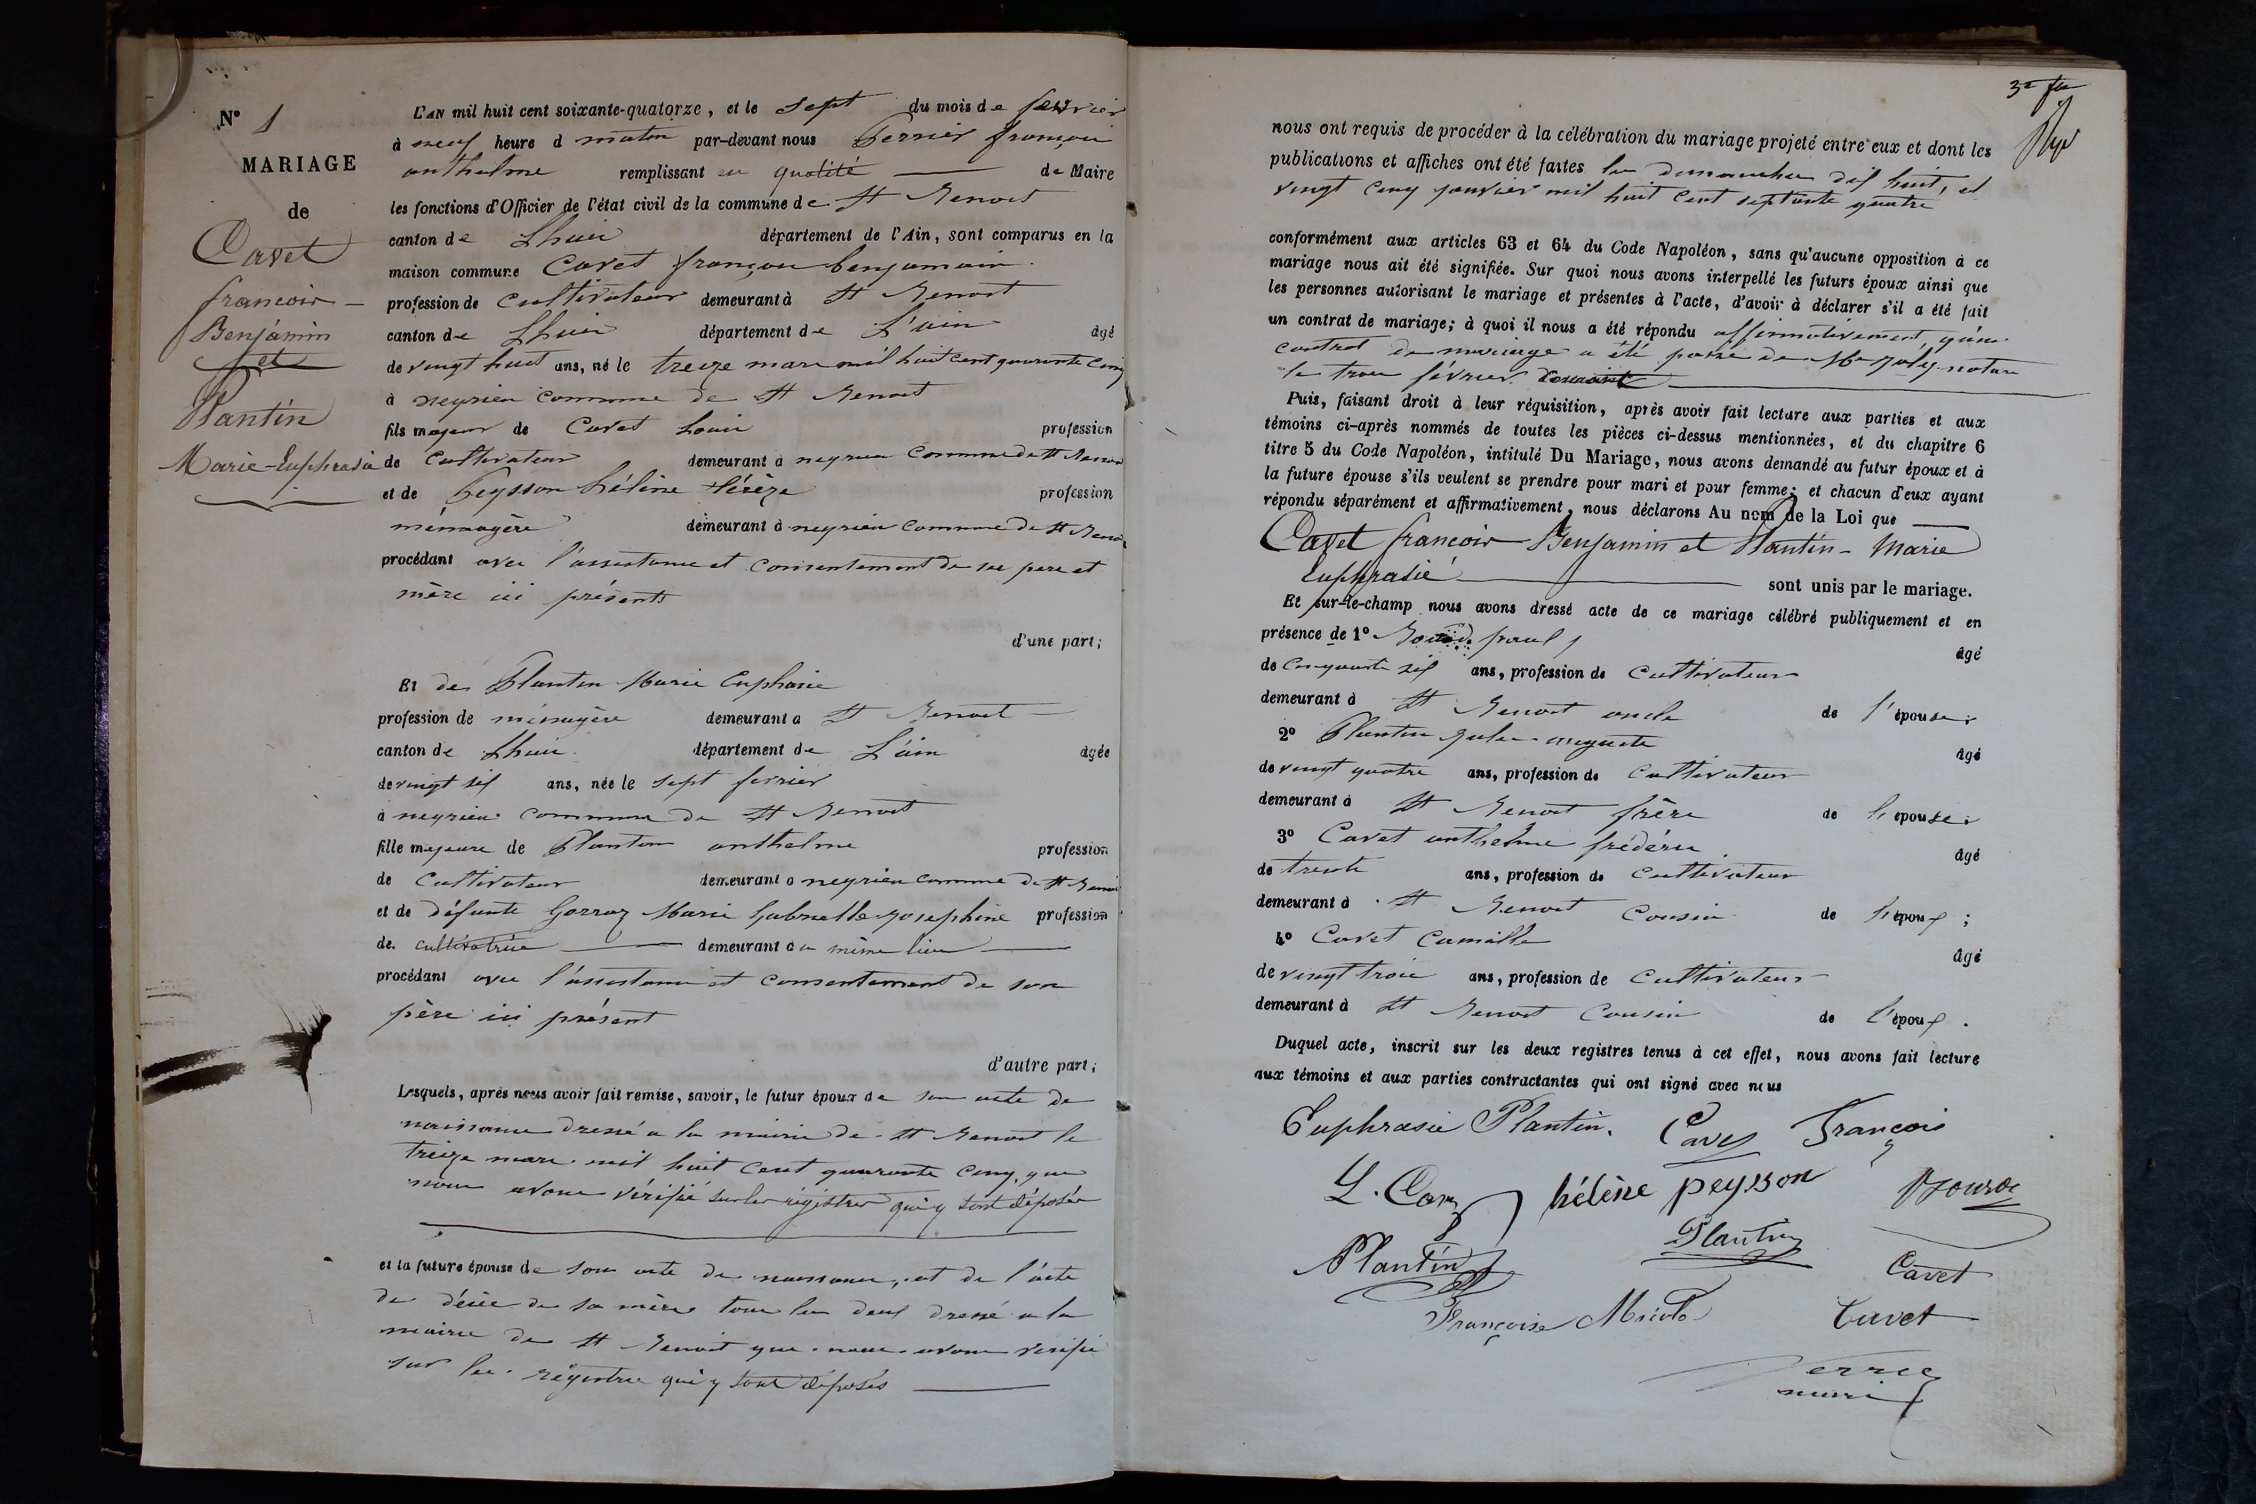 N° 1
MARIAGE
de
Cavet
francois
Benjamin
et
Plantin
Marie-Euphrasie
L'AN mil huit cent soixante-quatorze, et le sept du mois de fevrier
à neuf heure d matin par-devant nous Perrier françois
anthelme remplissant en qualité de Maire
les fonctions d'Officier de l'état civil de la commune de St Benoit
canton de Lhuis département de l'Ain, sont comparus en la
maison commune Cavet françois benjamin
profession de Cultivateur demeurant à St Benoit
canton de Lhuis département de L'ain âgé
de vingt huit ans, né le treize mars mil huit cent quarante cinq
à neyrieu commune de St Benoit
fils majeur de Cavet Louis profession
de Cultivateur demeurant à neyrieu Commune de St Benoit
et de Peysson hélène térèze profession
ménagère demeurant à neyrieu commune de St Benoit
procédant avec l'assistance et consentement de ses père et
mère ici présents
d'une part;
Et de Plantin Marie Euphrasie
profession de ménagère demeurant à St Benoit
canton de Lhuis département de L'ain âgée
de vingt six ans, née le sept fevrier
à neyrieu commune de St Benoit
fille majeure de Plantin anthelme profession
de Cultivateur demeurant à neyrieu commune de St Benoit
et de défunte Gorraz Marie Gabrielle josephine profession
de cultivatrice demeurant au même lieu
procédant avec l'assistance et consentement de son
père ici présent
d'autre part;
Lesquels, après nous avoir fait remise, savoir, le futur époux de son acte de
naissance dressé a la mairie de St Benoit le
treize mars mil huit cent quarante cinq, que
nous avons vérifié sur les régistres qui y sont déposés
et la future épouse de son acte de naissance, et de l'acte
de décès de sa mère tous les deux dressé a la
mairie de St Benoit que nous avons vérifié
sur les régistres qui y sont déposés
nous ont requis de procéder à la célébration du mariage projeté entre eux et dont les
publications et affiches ont été faites les dimanches dix huit, et
vingt cinq janvier mil huit cent septante quatre
conformément aux articles 63 et 64 du Code Napoléon, sans qu'aucune opposition à ce
mariage nous ait été signifiée. Sur quoi nous avons interpellé les futurs époux ainsi que
les personnes autorisant le mariage et présentes à l'acte, d'avoir à déclarer s'il a été fait
un contrat de mariage; à quoi il nous a été répondu affirmativement qu'un
contrat de mariage a été passé de Me joly notaire
le trois février courant
Puis, faisant droit à leur réquisition, après avoir fait lecture aux parties et aux
témoins ci-après nommés de toutes les pièces ci-dessus mentionnées, et du chapitre 6
titre 5 du Code Napoléon, intitulé Du Mariage, nous avons demandé au futur époux et à
la future épouse s'ils veulent se prendre pour mari et pour femme; et chacun d'eux ayant
répondu séparément et affirmativement, nous déclarons Au nom de la Loi que
Cavet francois Benjamin et Plantin Marie
Euphrasie sont unis par le mariage.
Et sur-le-champ nous avons dressé acte de ce mariage célébré publiquement et en
présence de 1° âgé
de cinquante six ans, profession de Cultivateur
demeurant à St Benoit oncle de l'épouse;
2° Plantin jules auguste âgé
de vingt quatre ans, profession de Cultivateur
demeurant à St Benoit frère de l'épouse;
3° Cavet anthelme frédéric âgé
de trente ans, profession de Cultivateur
demeurant à St Benoit Cousin de l'époux;
4° Cavet Camille âgé
de vingt trois ans, profession de Cultivateur
demeurant à St Benoit Cousin de l'époux.
Duquel acte, inscrit sur les deux registres tenus à cet effet, nous avons fait lecture
aux témoins et aux parties contractantes qui ont signé avec nous
Euphrasie Plantin. Cavet François
L. Cavet hélène peysson
Plantin Plantin Cavet
Françoise Cavet
Perrier
maire